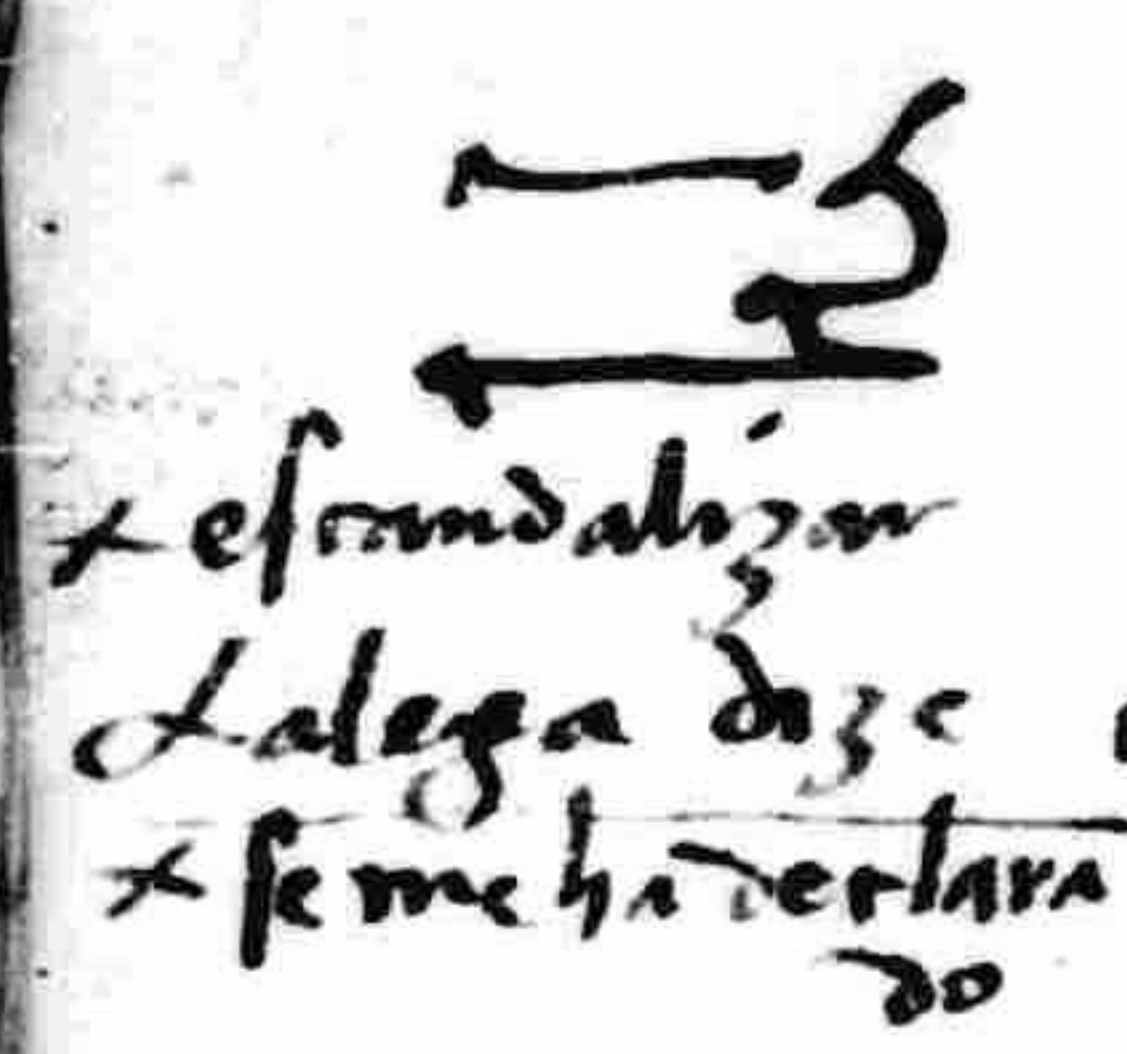 + eſcandalizar
& alega dize
+ ſe me ha declara
do